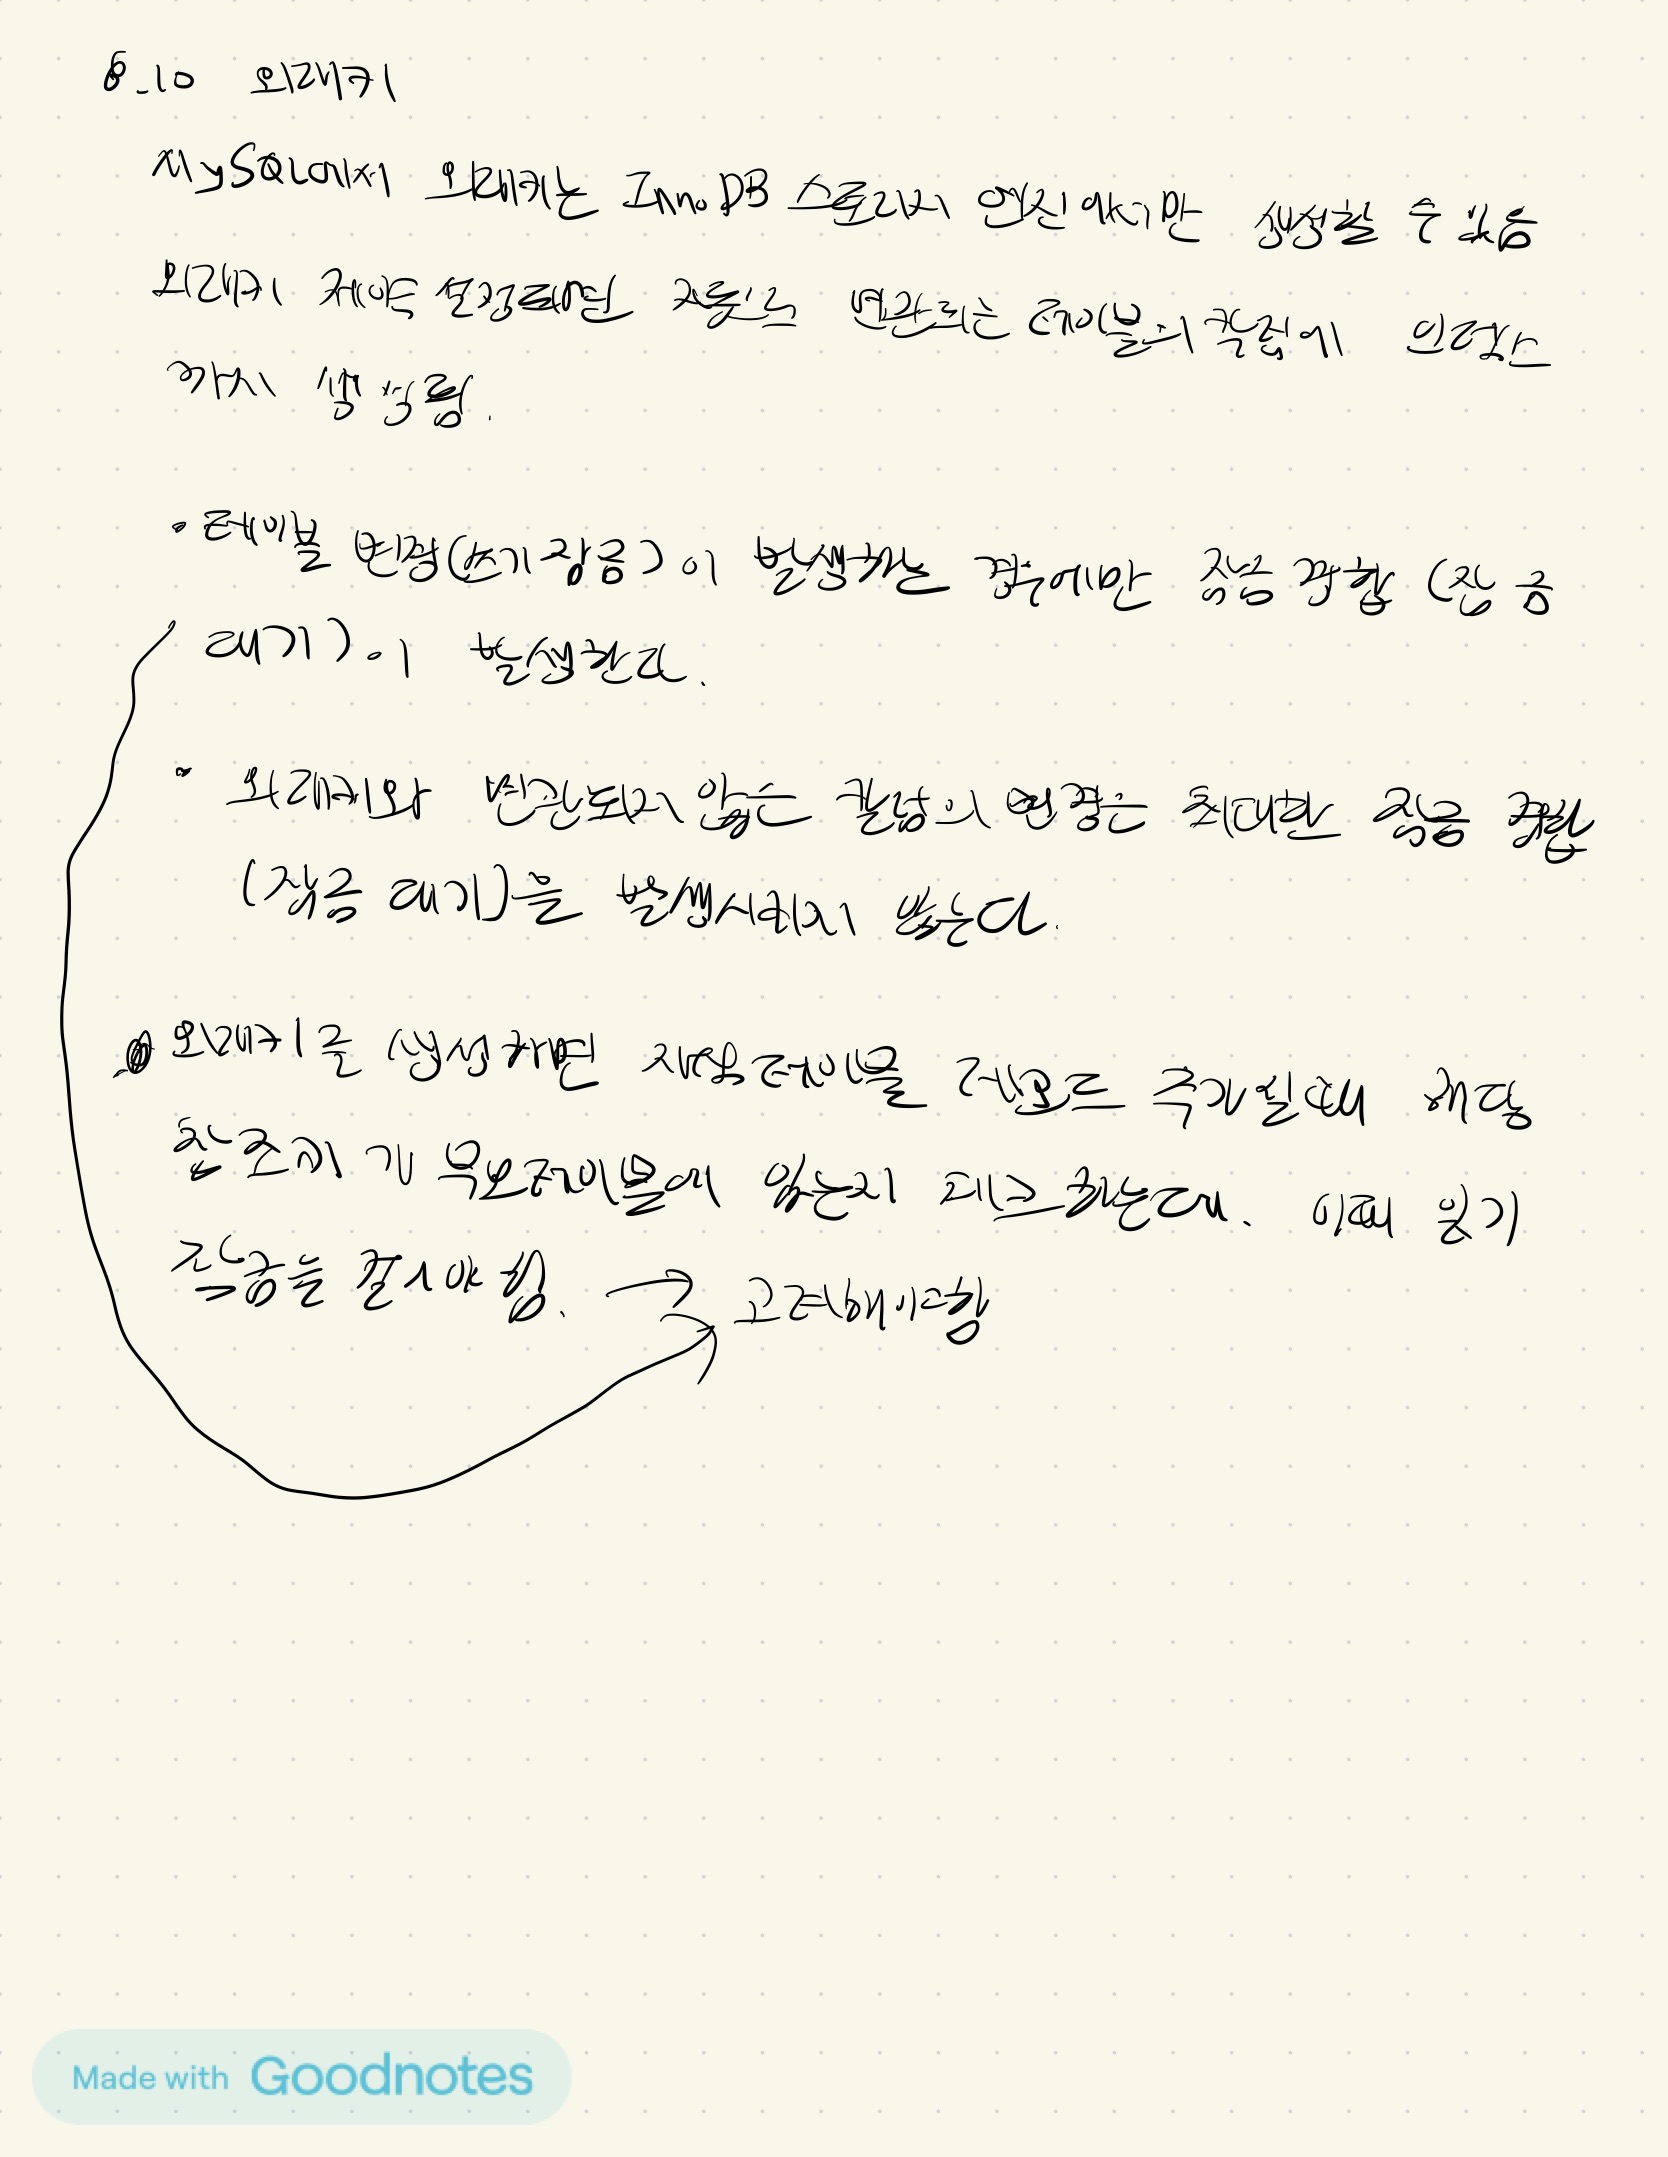 8.10 외래키
MySQL에서 외래키는 InnoDB 스토리지 엔진에서만 생성할 수 있음
외래키 제약 설정되면 자동으로 연관되는 테이블의 칼럼에 인덱스
까지 생성됨.
• 테이블 변경(쓰기 잠금)이 발생하는 경우에만 잠금 경합 (잠금
대기)이 발생한다.
• 외래키와 연관되지 않는 칼럼의 변경은 최대한 잠금 경합
(잠금 대기)을 발생시키지 않는다.
외래키를 생성하면 자식테이블 레코드 추가될때 해당
참조키가 부모테이블에 있는지 체크하는데. 이때 읽기
잠금을 걸어야 함. → 고려해야함
Made with Goodnotes